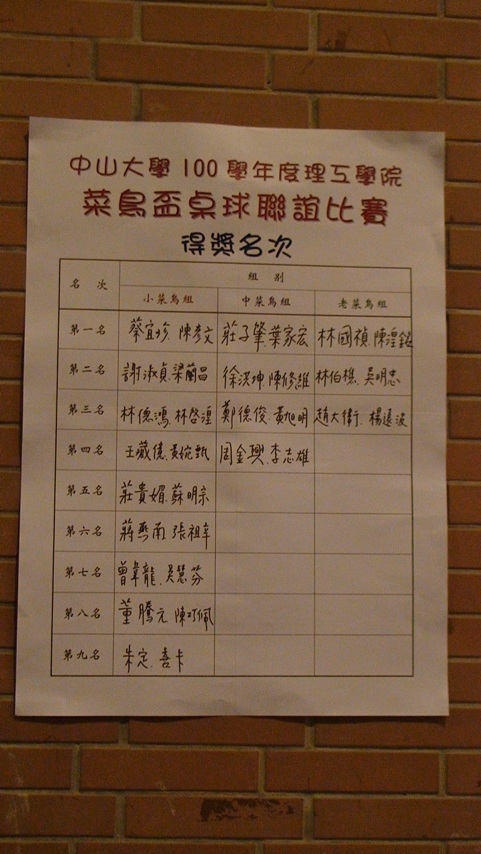 中山大學100學年度理工學院
菜鳥盃桌球聯誼比賽
得獎名次
名次 組別
小菜鳥組 中菜鳥組 老菜鳥組
第一名 蔡宜珍.陳彥文 莊子肇.葉家宏 林國禎.陳
第二名 謝淑貞.梁蘭昌 徐洪坤.陳修維 林伯樵.吳明忠
第三名 林德鴻.林啓湟 鄭德俊.黃旭明 趙大衛.楊遠波
第四名 王箴億.黃婉甄 周金興.李志雄
第五名 莊貴媚.蘇明宗
第六名 蔣燕南.張祖辛
第七名 曾韋龍.吳慧芬
第八名 董騰元.陳巧佩
第九名 朱定.喜卡